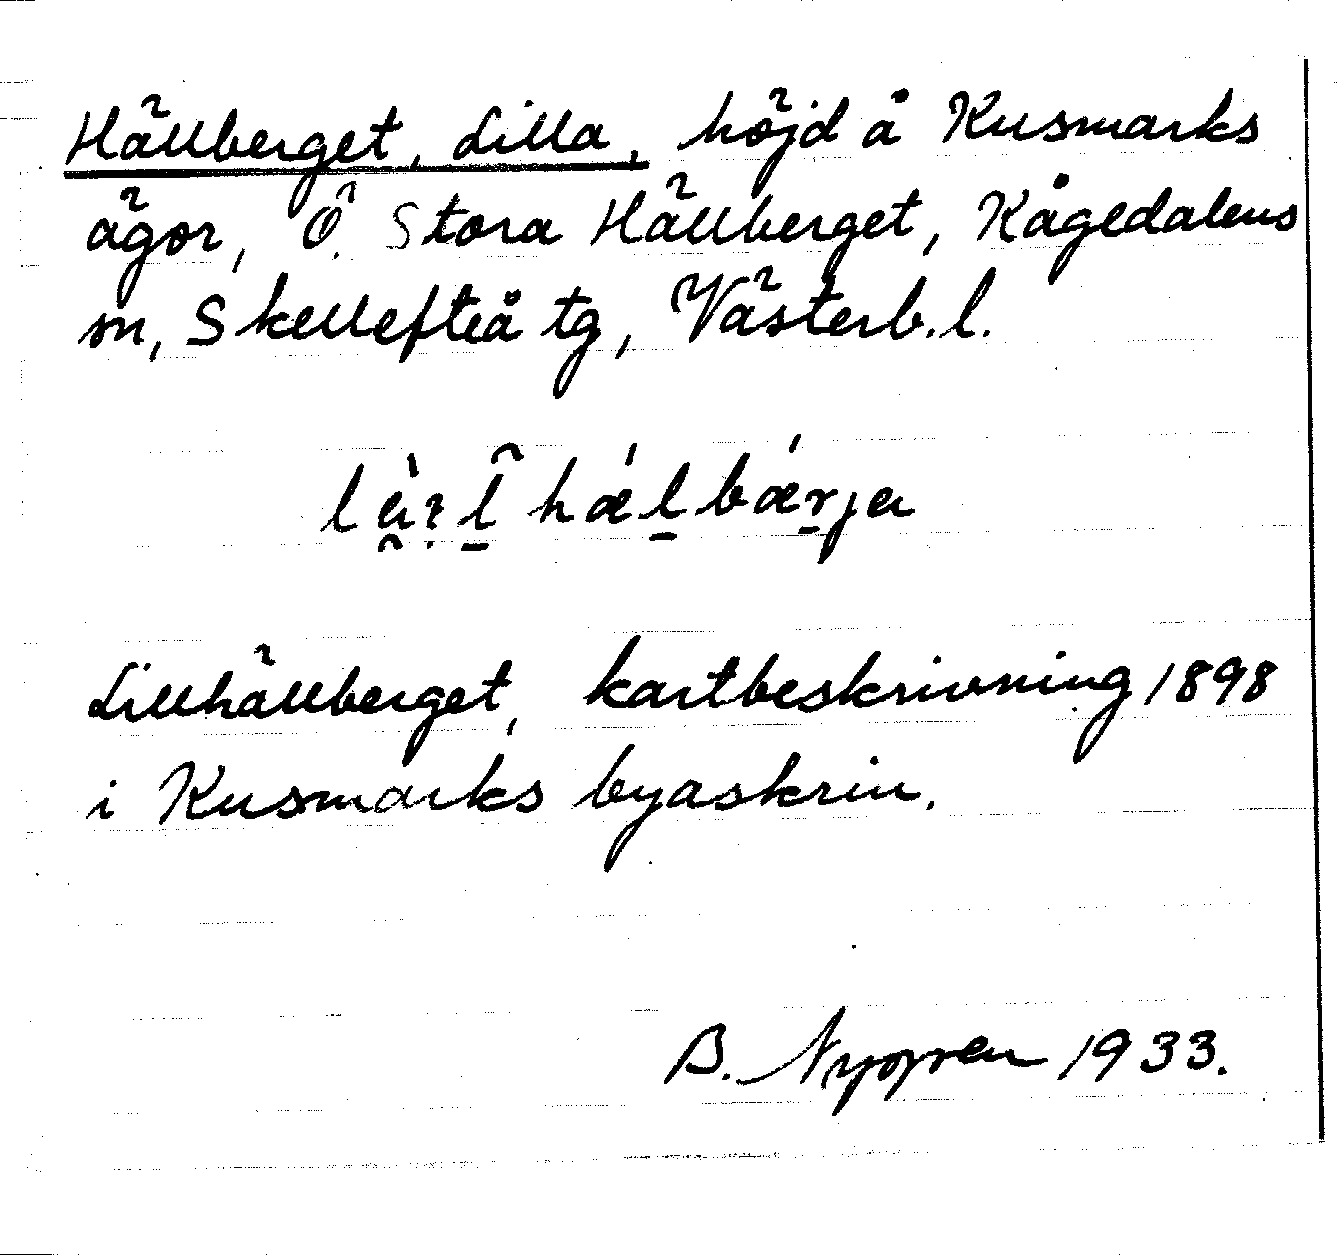 Hällberget, Lilla, höjd å Kusmarks
ägor, Ö. Stora Hällberget, Kågedalens
sn, Skellefteå tg, Västerb. l.
Lillhällberget, kartbeskrivning 1898
i Kusmarks byaskrin.
B. 1933.